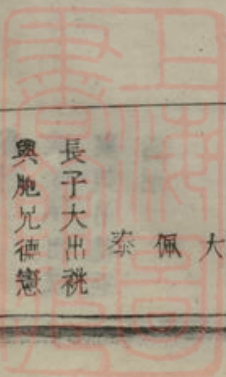 大
佩
泰
長子大出祧
與胞兄德憲